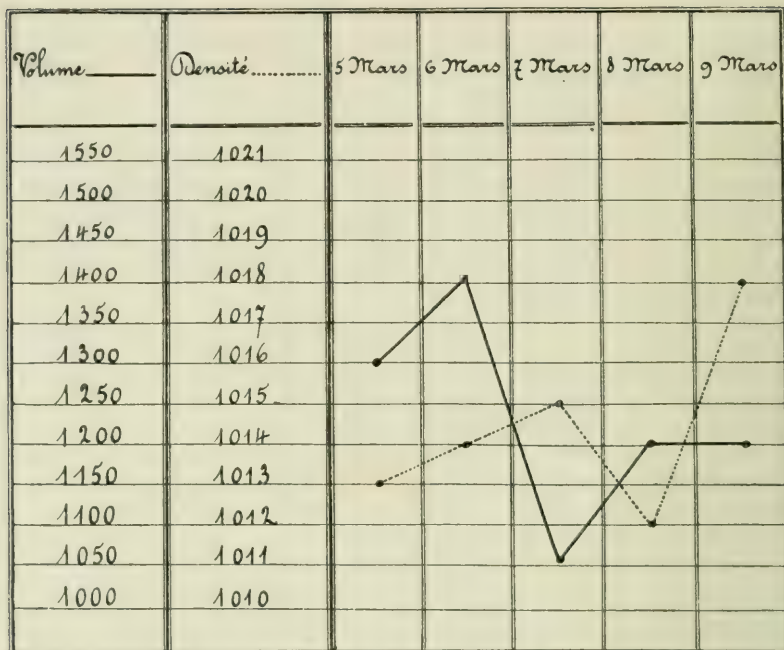 Volume Densité 5 Mars 6 Mars 7 Mars 8 Mars 9 Mars
1550 1021
1500 1020
1450 1019
1400 1018
1350 1017
1300 1016
1250 1015
1200 1014
1150 1013
1100 1012
1050 1011
1000 1010